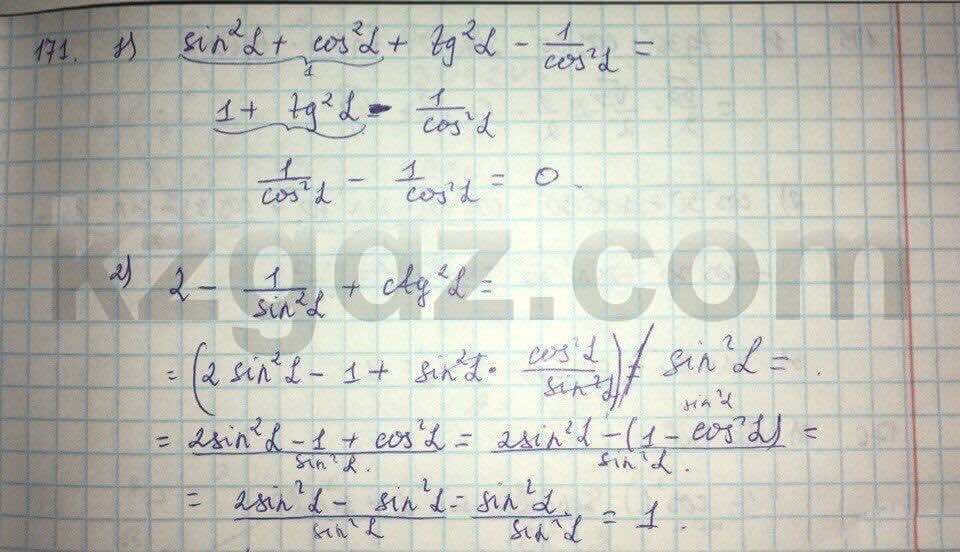 171. 1) sin²α + cos²α + tg²α − 1/cos²α =
1
1 + tg²α − 1/cos²α
1/cos²α − 1/cos²α = 0.
kzgdz.com
2) 2 − 1/sin²α + ctg²α =
= (2 sin²α − 1 + sin²α · cos²α/sin²α) / sin²α =
sin²α
= (2sin²α − 1 + cos²α)/sin²α = (2sin²α − (1 − cos²α))/sin²α =
= (2sin²α − sin²α)/sin²α = sin²α/sin²α = 1.